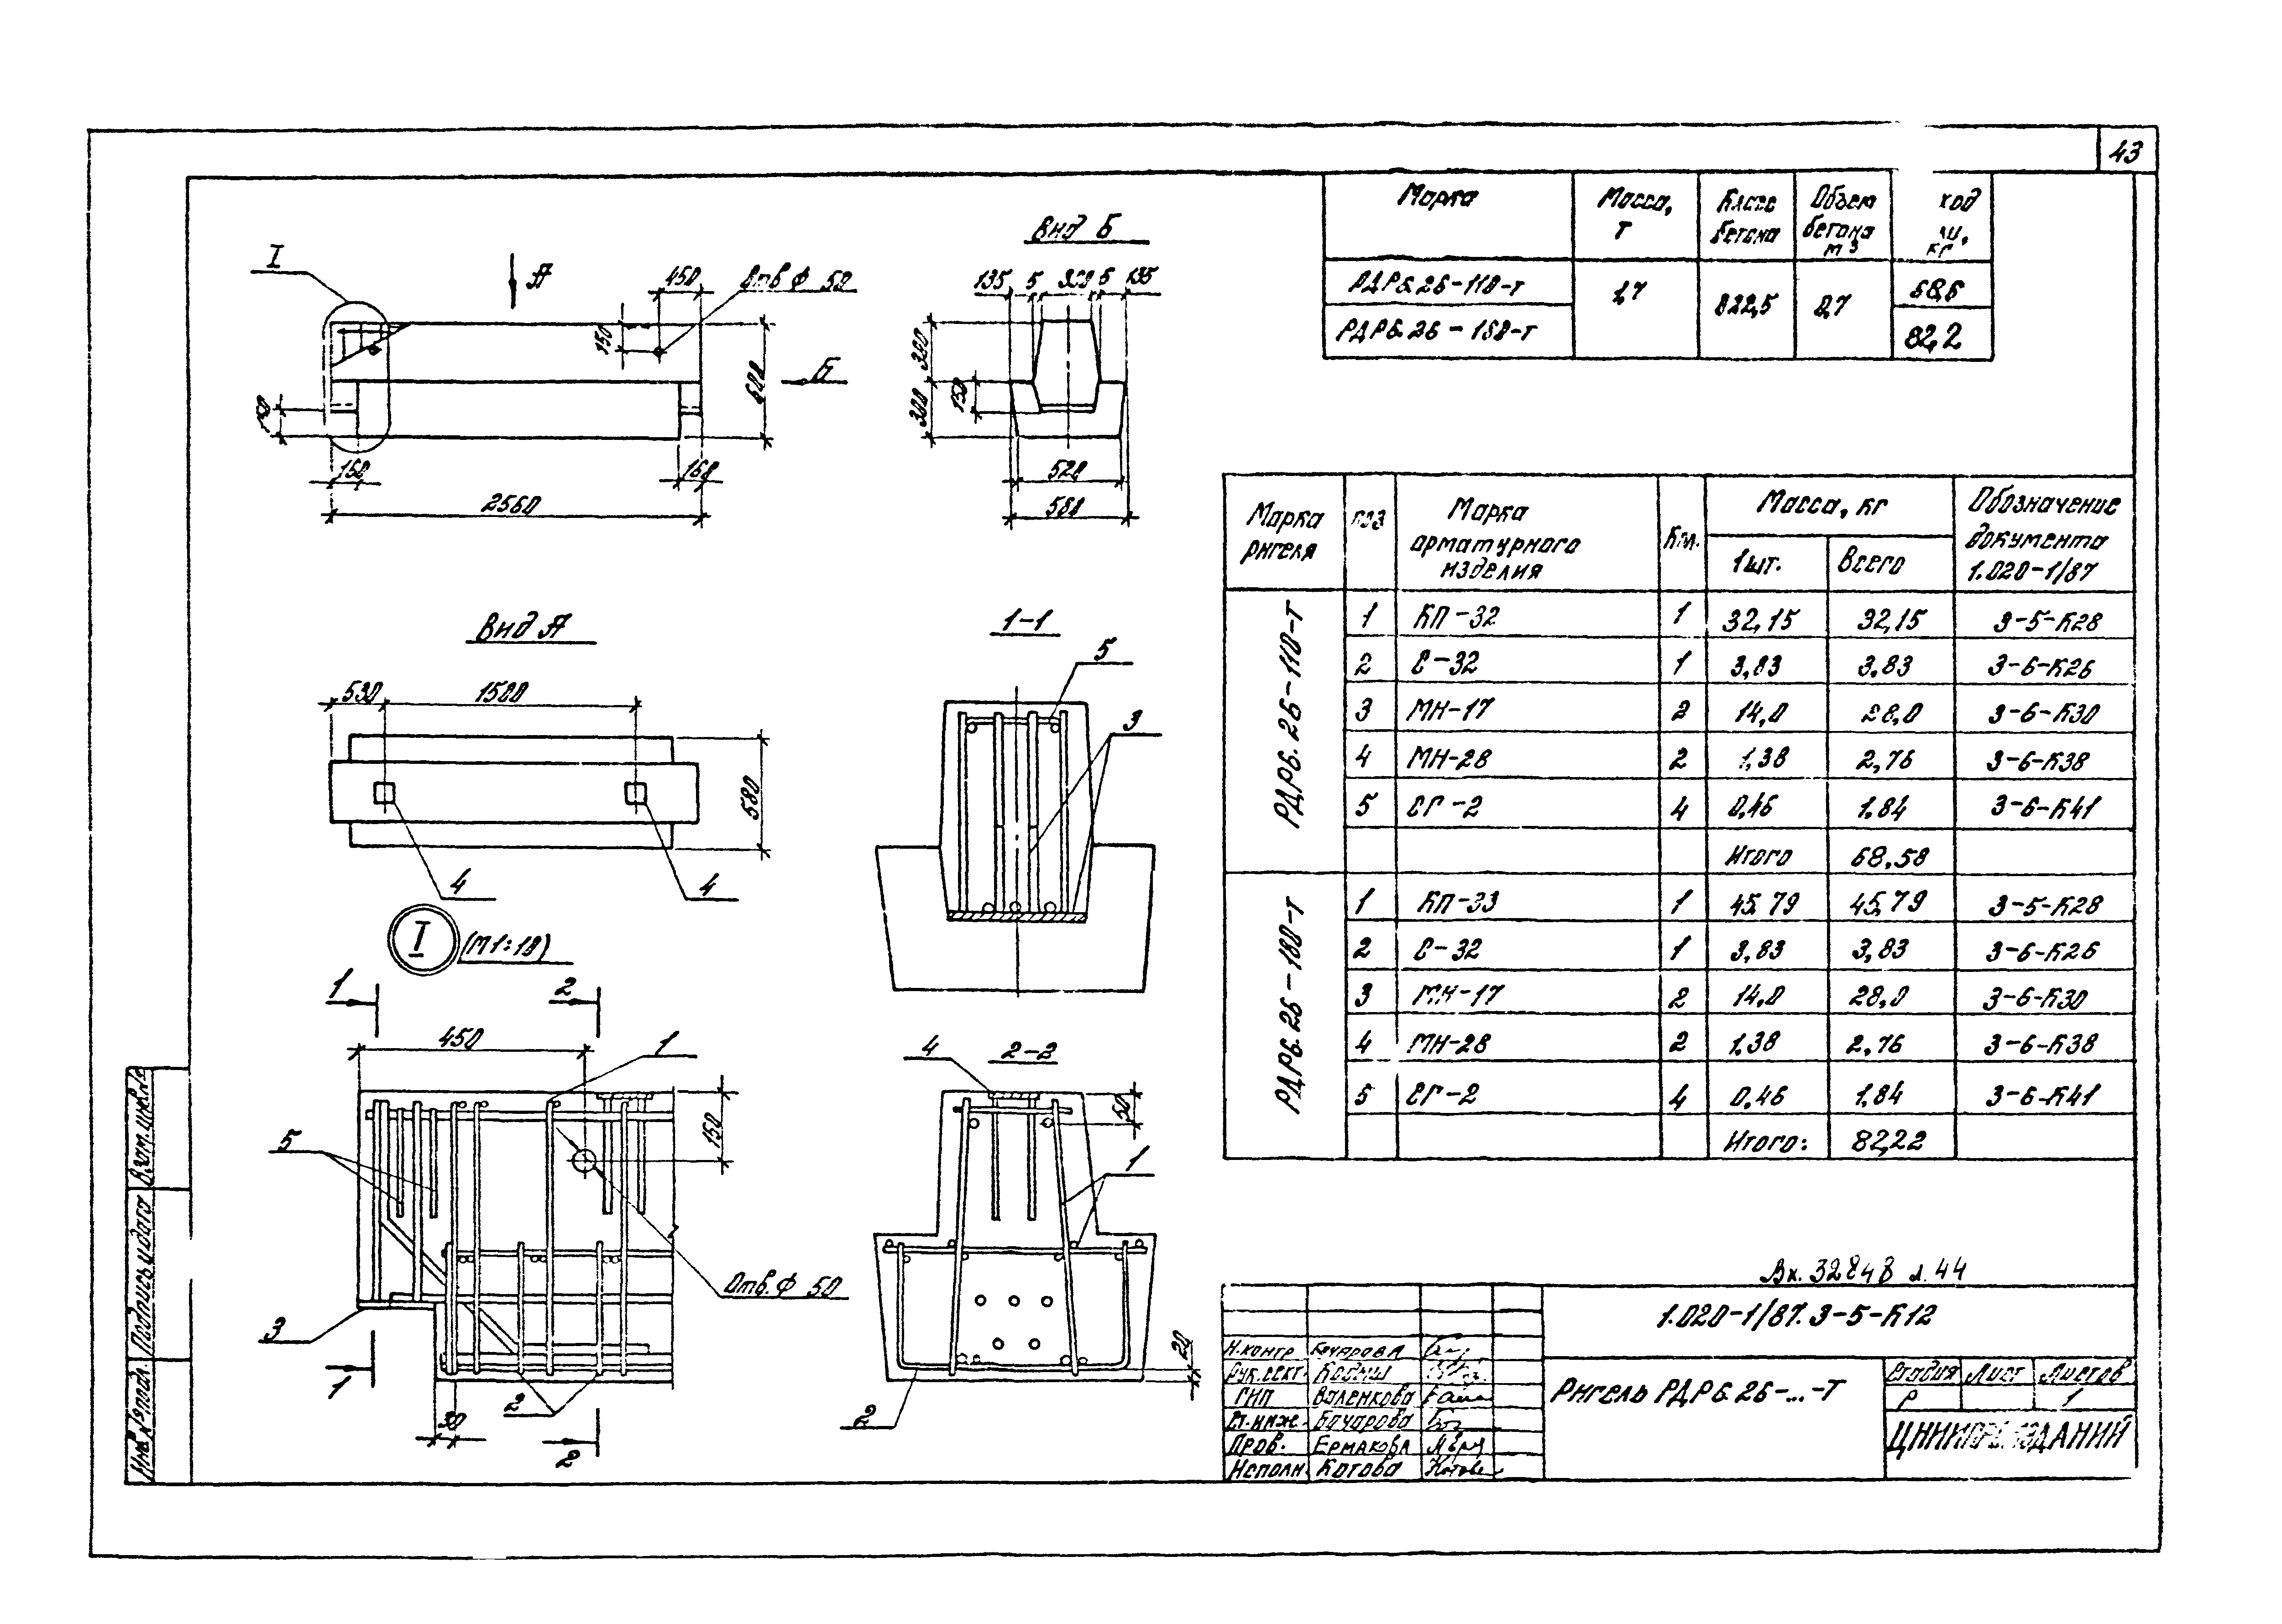 43
Марка
Масса, т
Класс бетона
Объем бетона м3
ход
кг
РДР6.26-110-т
1,7
В22,5
0,7
68,6
РДР6.26-180-т
82,2
I
А
450
Отв Ф 50
150
600
Б
150
160
2560
Вид Б
135
5
300
5
135
300
300
150
520
580
Вид А
530
1500
580
4
4
1-1
5
3
I
(М1:10)
1
2
450
1
5
150
Отв. Ф 50
3
1
2
30
2
4
2-2
50
1
20
2
Марка ригеля
поз
Марка арматурного изделия
Кол.
Масса, кг
1шт.
Всего
Обозначение документа 1.020-1/87
РДР6.26-110-т
1 КП-32 1 32,15 32,15 3-5-К28
2 С-32 1 3,83 3,83 3-6-К26
3 МН-17 2 14,0 28,0 3-6-К30
4 МН-28 2 1,38 2,76 3-6-К38
5 СГ-2 4 0,46 1,84 3-6-К41
Итого 68,58
РДР6.26-180-т
1 КП-33 1 45,79 45,79 3-5-К28
2 С-32 1 3,83 3,83 3-6-К26
3 МН-17 2 14,0 28,0 3-6-К30
4 МН-28 2 1,38 2,76 3-6-К38
5 СГ-2 4 0,46 1,84 3-6-К41
Итого: 82,22
Вх. 32848 л.44
1.020-1/87.3-5-К12
Н.контр. Бочарова
Рук.сект.
ГИП Воленкова
Ст.инж. Бочарова
Пров. Ермакова
Исполн. Котова
Ригель РДР6.26-...-Т
Стадия Лист Листов
Р 1
ЦНИИПРОМЗДАНИЙ
Взам.инв.№
Подпись и дата
Инв.№ подл.